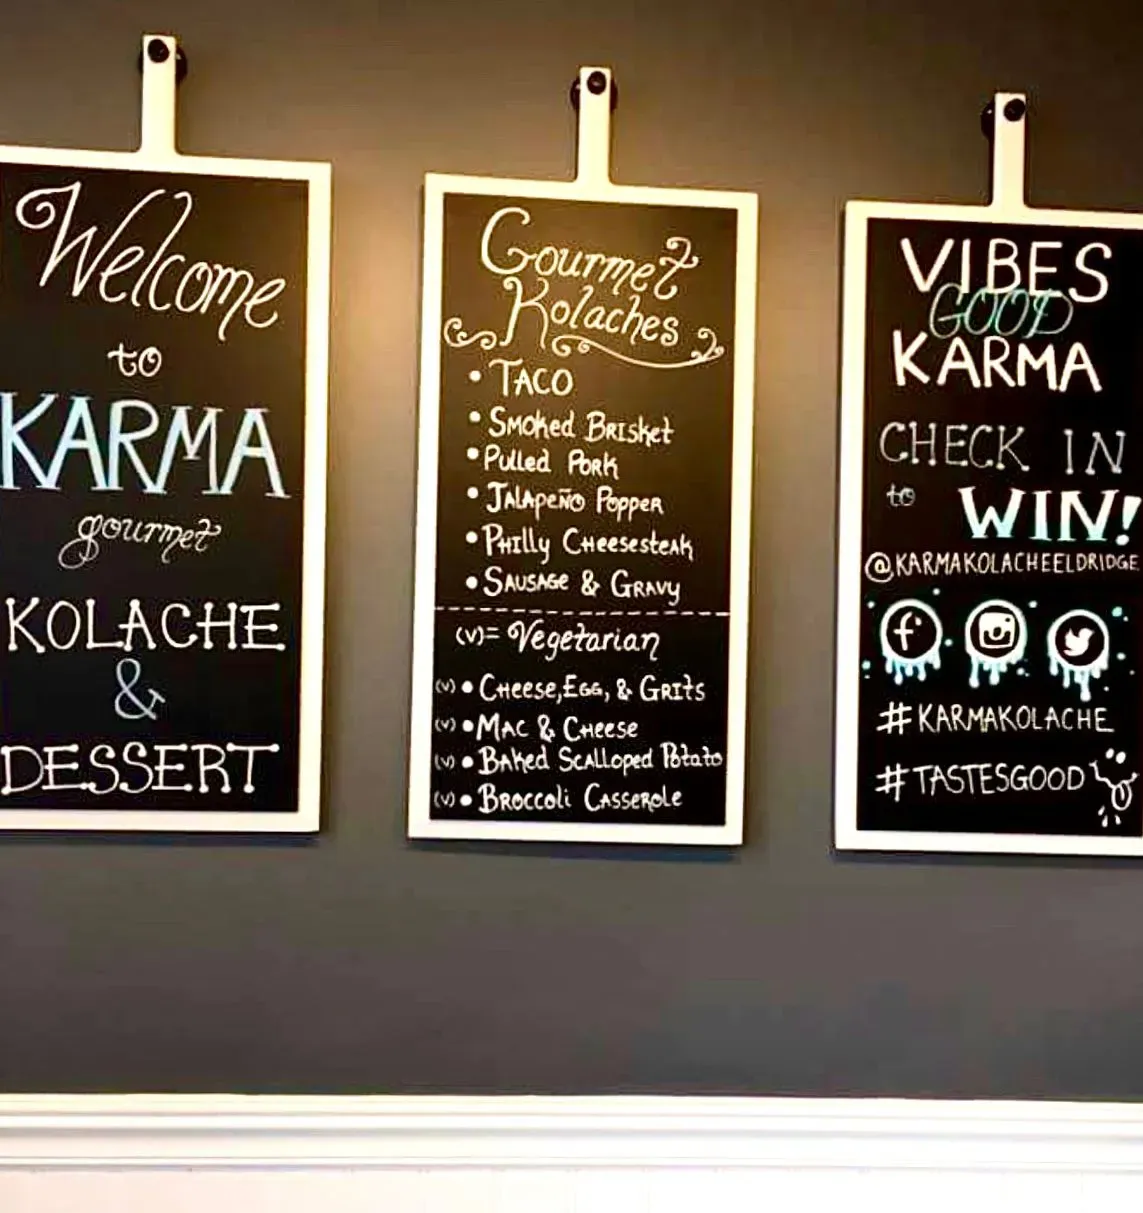 Welcome
to
KARMA
gourmet
KOLACHE
&
DESSERT
Gourmet
Kolaches
• TACO
• SMOKED BRISKET
• PULLED PORK
• JALAPEÑO POPPER
• PHILLY CHEESESTEAK
• SAUSAGE & GRAVY
(V)= Vegetarian
(V) • CHEESE, EGG, & GRITS
(V) • MAC & CHEESE
(V) • BAKED SCALLOPED POTATO
(V) • BROCCOLI CASSEROLE
VIBES
GOOD
KARMA
CHECK IN
to WIN!
@KARMAKOLACHEELDRIDGE
f
#KARMAKOLACHE
#TASTESGOOD